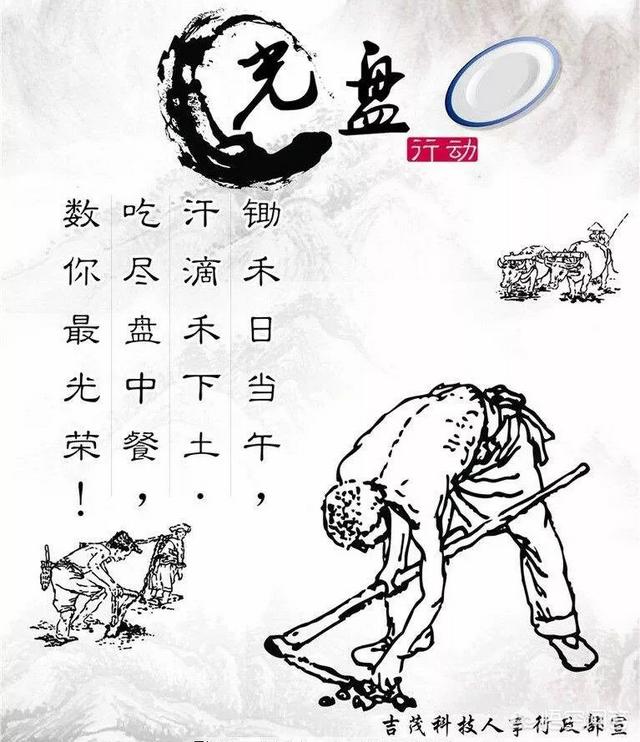 光盘
行动
锄禾日当午，
汗滴禾下土.
吃尽盘中餐，
数你最光荣！
吉茂科技人事行政部宣